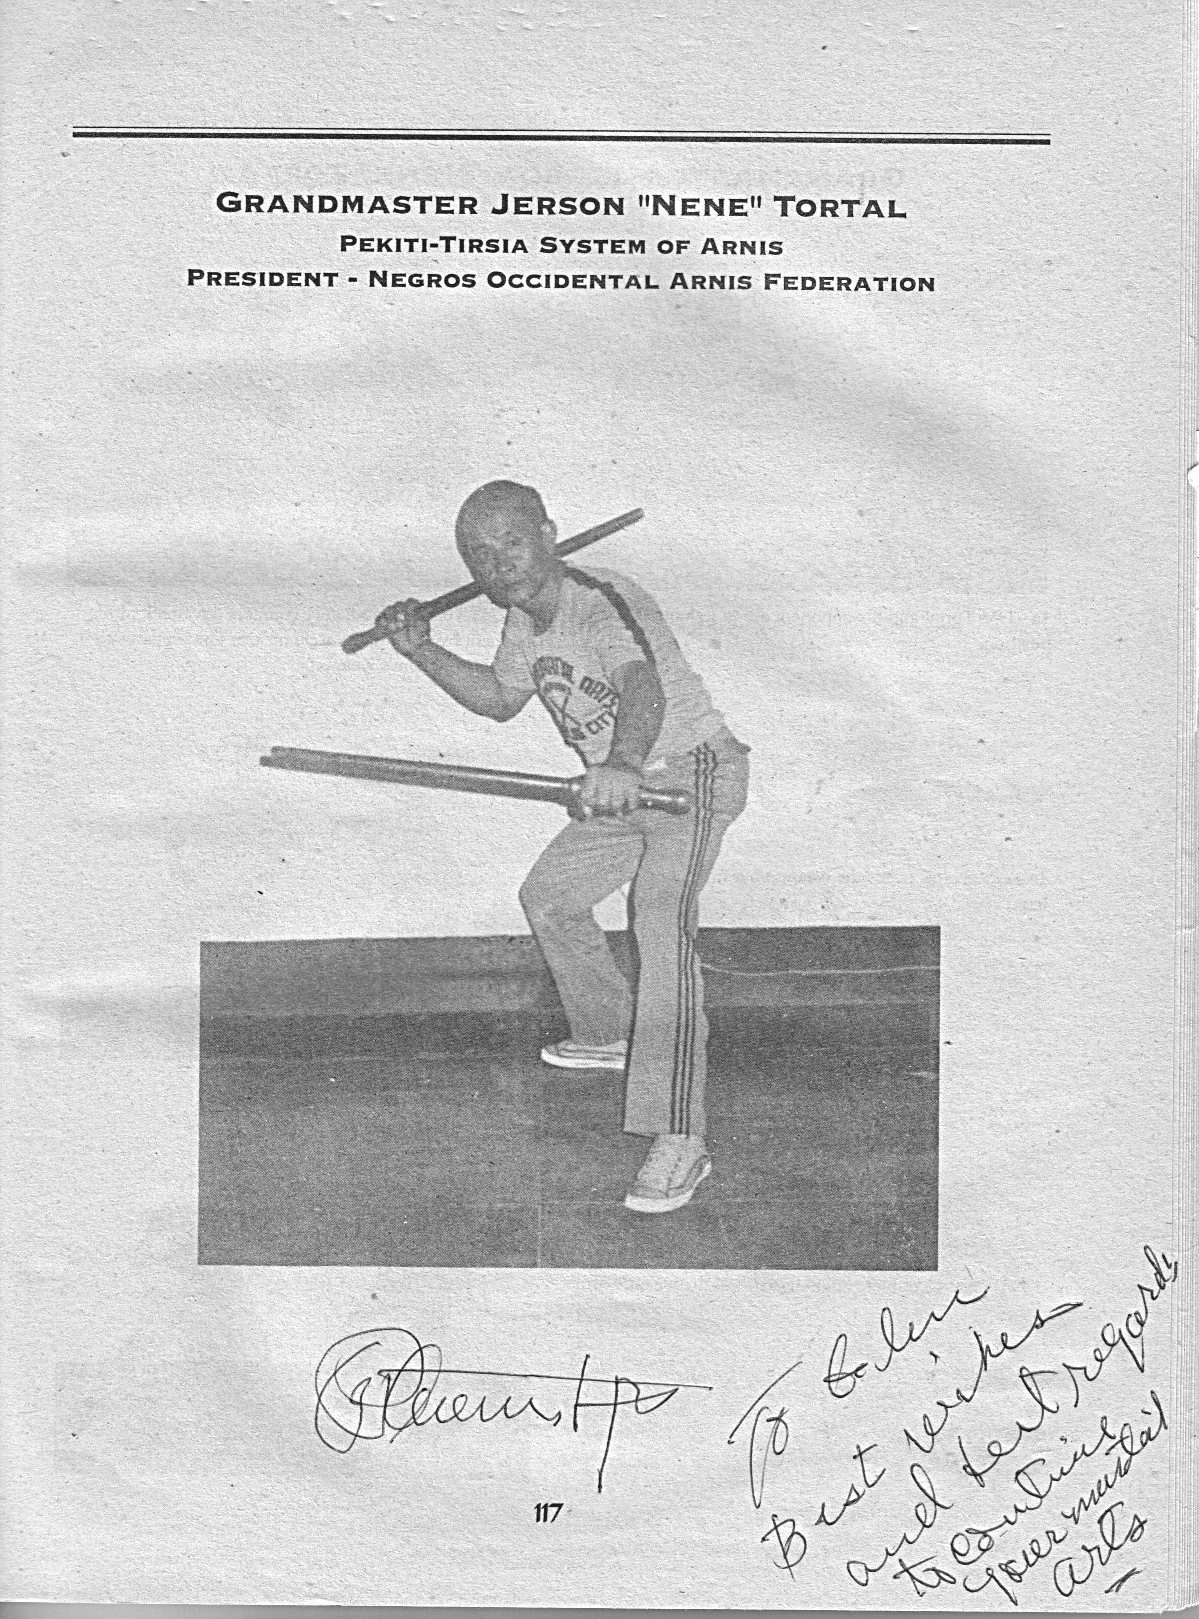 GRANDMASTER JERSON "NENE" TORTAL
PEKITI-TIRSIA SYSTEM OF ARNIS
PRESIDENT - NEGROS OCCIDENTAL ARNIS FEDERATION
ARTS
CITY
To
Best wishes
and best regards
to continue
your martial
arts
117